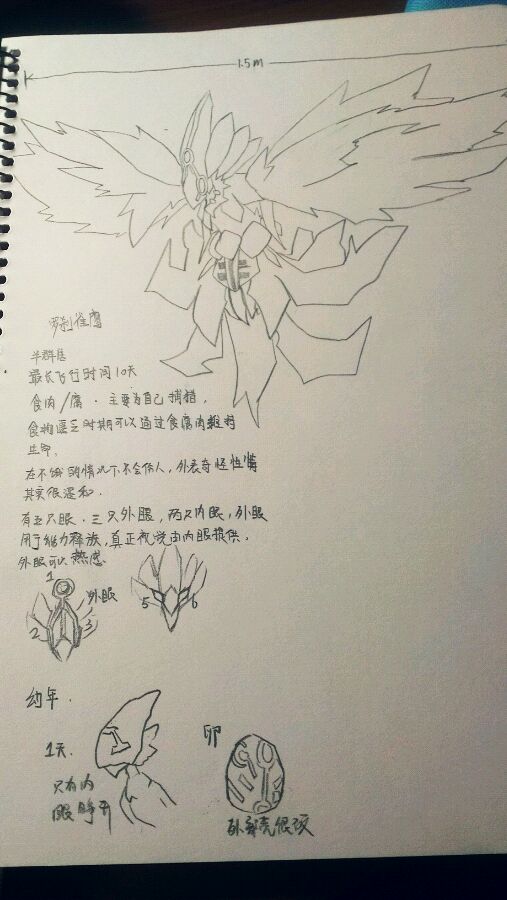 1.5m
罗刹雀鹰
半群居
最长飞行时间10天
食肉/腐.主要为自己捕猎.
食物匮乏时期可以通过食腐肉维持
生命.
在不饿的情况下不会伤人,外表奇怪
其实很温和.
有五只眼.三只外眼,两只内眼,外眼
用于能力释放,真正视觉由内眼提供.
外眼可以热感.
1
外眼
2 3
5 6
幼年.
1天.
只有内
眼睁开
卵
外部壳很硬